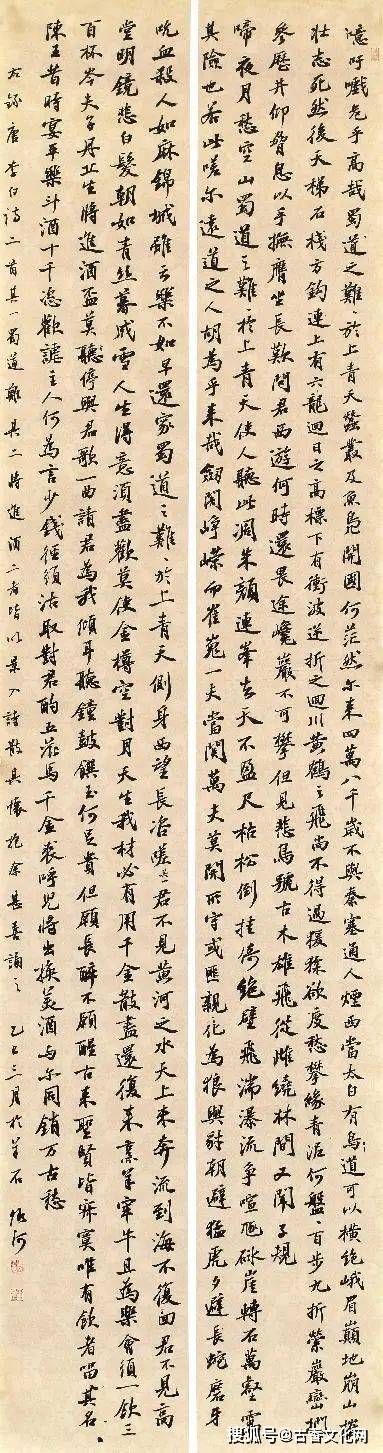 噫吁嚱危乎高哉蜀道之難〻於上青天蠶叢及魚鳧開國何茫然尔来四萬八千歲不與秦塞通人煙西當太白有鳥道可以橫絕峨眉巔地崩山摧
壮志死然後天梯石棧方鉤連上有六龍迴日之高標下有衝波逆折之迴川黃鶴之飛尚不得過猨猱欲度愁攀緣青泥何盤〻百步九折縈巖巒捫
參歷井仰脅息以手撫膺坐長歎問君西遊何時還畏途巉巖不可攀但見悲鳥號古木雄飛從雌繞林間又聞子規
啼夜月愁空山蜀道之難〻於上青天使人聽此凋朱顏連峯去天不盈尺枯松倒挂倚絕壁飛湍瀑流爭喧豗砯崖轉石萬壑雷
其險也若此嗟尔遠道之人胡為乎来哉劍閣崢嶸而崔嵬一夫當關萬夫莫開所守或匪親化為狼與豺朝避猛虎夕避長蛇磨牙
吮血殺人如麻錦城雖云樂不如早還家蜀道之難〻於上青天側身西望長咨嗟君不見黃河之水天上来奔流到海不復回君不見高
堂明鏡悲白髮朝如青絲暮成雪人生得意須盡歡莫使金樽空對月天生我材必有用千金散盡還復来烹羊宰牛且為樂會須一飲三
百杯岑夫子丹丘生將進酒盃莫聽停與君歌一曲請君為我傾耳聽鐘鼓饌玉何足貴但願長醉不願醒古来聖賢皆寂寞唯有飲者留其名
陳王昔時宴平樂斗酒十千恣歡謔主人何為言少錢徑須沽取對君酌五花馬千金裘呼兒將出換美酒与尔同銷万古愁
右錄唐李白詩二首其一蜀道難其二將進酒二者皆以景入詩散其懷抱余甚喜誦之乙巳三月於羊石河
搜狐号@古香文化网